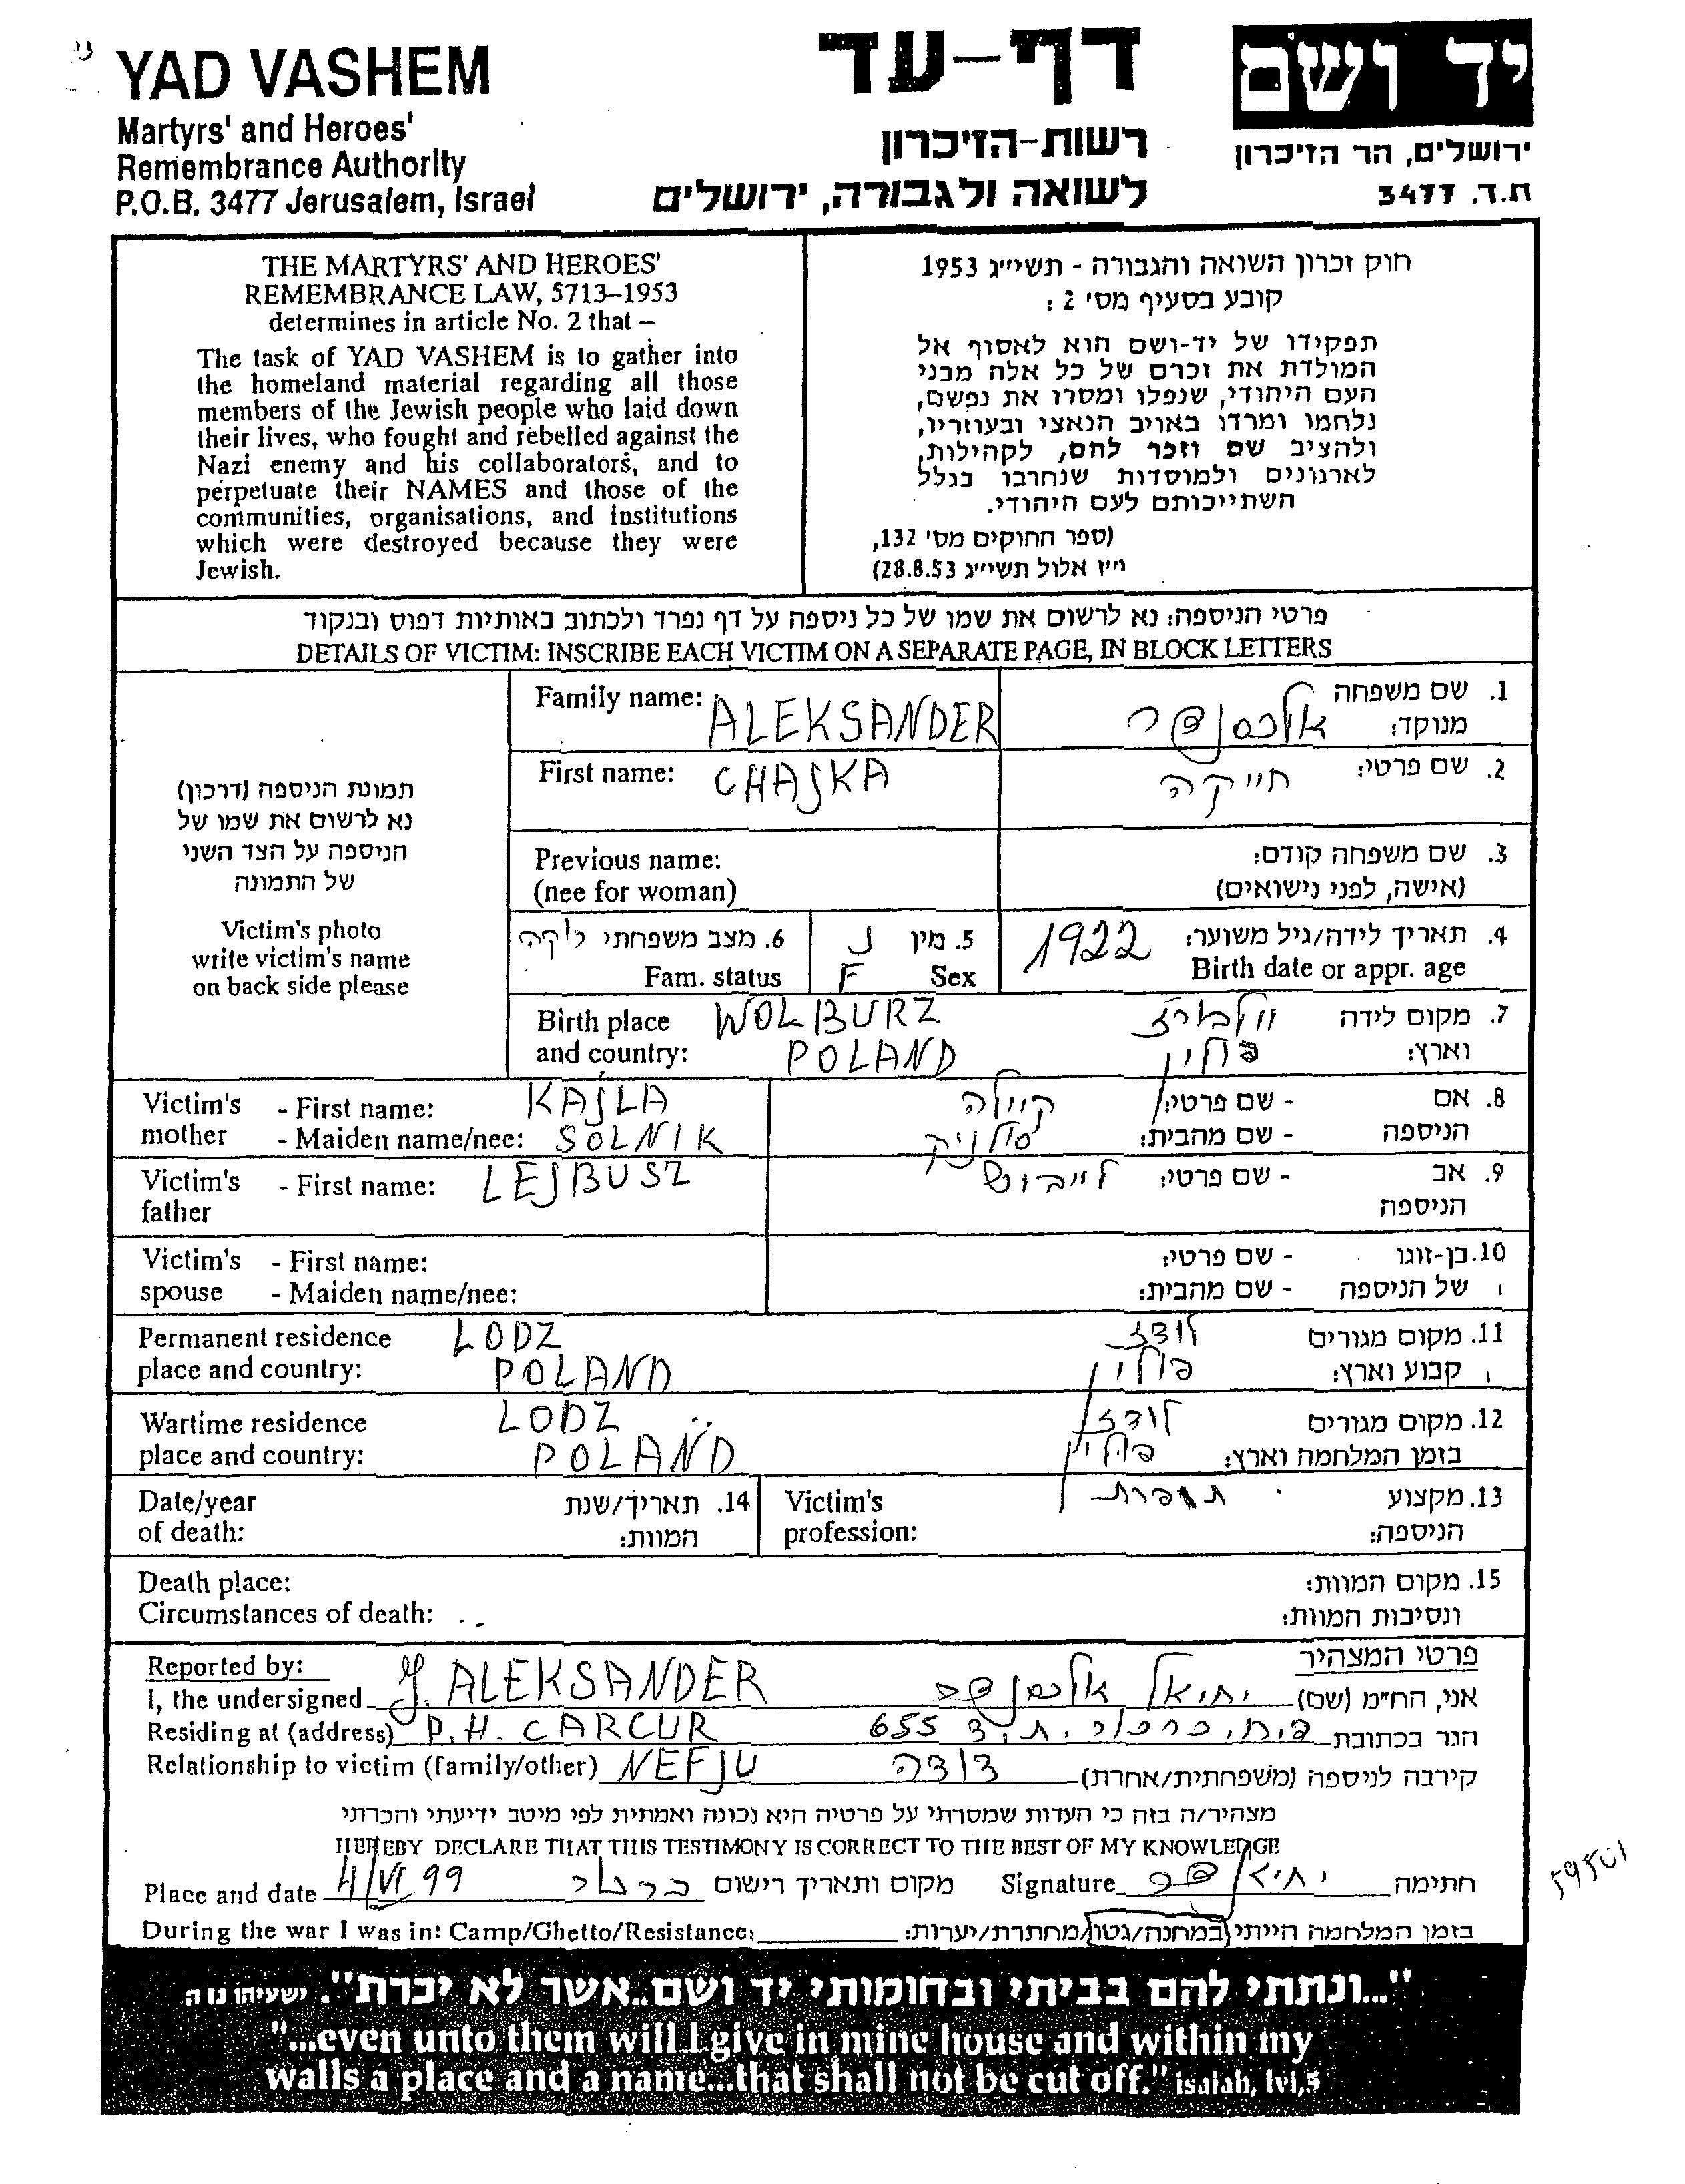 YAD VASHEM
Martyrs' and Heroes'
Remembrance Authority
P.O.B. 3477 Jerusalem, Israel
דף-עד
רשות-הזיכרון
לשואה ולגבורה, ירושלים
יד ושם
ירושלים, הר הזיכרון
ת.ד. 3477
THE MARTYRS' AND HEROES'
REMEMBRANCE LAW, 5713–1953
determines in article No. 2 that –
The task of YAD VASHEM is to gather into
the homeland material regarding all those
members of the Jewish people who laid down
their lives, who fought and rebelled against the
Nazi enemy and his collaborators, and to
perpetuate their NAMES and those of the
communities, organisations, and institutions
which were destroyed because they were
Jewish.
חוק זכרון השואה והגבורה - תשי״ג 1953
קובע בסעיף מס' 2:
תפקידו של יד-ושם הוא לאסוף אל
המולדת את זכרם של כל אלה מבני
העם היהודי, שנפלו ומסרו את נפשם,
נלחמו ומרדו באויב הנאצי ובעוזריו,
ולהציב שם וזכר להם, לקהילות,
לארגונים ולמוסדות שנחרבו בגלל
השתייכותם לעם היהודי.
(ספר החוקים מס' 132,
י״ז אלול תשי״ג 28.8.53)
פרטי הניספה: נא לרשום את שמו של כל ניספה על דף נפרד ולכתוב באותיות דפוס ובנקוד
DETAILS OF VICTIM: INSCRIBE EACH VICTIM ON A SEPARATE PAGE, IN BLOCK LETTERS
תמונת הניספה (דרכון)
נא לרשום את שמו של
הניספה על הצד השני
של התמונה
Victim's photo
write victim's name
on back side please
Family name: ALEKSANDER אלכסנדר 1. שם משפחה
מנוקד:
First name: CHAJKA חייקה 2. שם פרטי:
Previous name: 3. שם משפחה קודם:
(nee for woman) (אישה, לפני נישואים)
6. מצב משפחתי רווקה 5. מין נ 1922 4. תאריך לידה/גיל משוער:
Fam. status F Sex Birth date or appr. age
Birth place WOLBURZ וולבורז 7. מקום לידה
and country: POLAND פולין וארץ:
Victim's - First name: KAJLA קיילה - שם פרטי: 8. אם
mother - Maiden name/nee: SOLNIK סולניק - שם מהבית: הניספה
Victim's - First name: LEJBUSZ לייבוש - שם פרטי: 9. אב
father הניספה
Victim's - First name: - שם פרטי: 10. בן-זוגו
spouse - Maiden name/nee: - שם מהבית: של הניספה
Permanent residence LODZ לודז 11. מקום מגורים
place and country: POLAND פולין קבוע וארץ:
Wartime residence LODZ לודז 12. מקום מגורים
place and country: POLAND פולין בזמן המלחמה וארץ:
Date/year 14. תאריך/שנת Victim's תופרת 13. מקצוע
of death: המוות: profession: הניספה:
Death place: 15. מקום המוות:
Circumstances of death: ונסיבות המוות:
Reported by: פרטי המצהיר
I, the undersigned J. ALEKSANDER יחיאל אלכסנדר אני, הח״מ (שם)
Residing at (address) P.H. CARCUR פ.ח. כרכור, ת.ד 655 הגר בכתובת
Relationship to victim (family/other) NEFJU דודה קירבה לניספה (משפחתית/אחרת)
מצהיר/ה בזה כי העדות שמסרתי על פרטיה היא נכונה ואמתית לפי מיטב ידיעתי והכרתי
HEREBY DECLARE THAT THIS TESTIMONY IS CORRECT TO THE BEST OF MY KNOWLEDGE
Place and date 4/VI 99 כרכור מקום ותאריך רישום Signature חתימה
During the war I was in: Camp/Ghetto/Resistance: בזמן המלחמה הייתי במחנה/גטו/מחתרת/יערות:
59501
"...ונתתי להם בביתי ובחומותי יד ושם..אשר לא יכרת". ישעיהו נו ה
"...even unto them will I give in mine house and within my
walls a place and a name...that shall not be cut off." isaiah, lvi,5